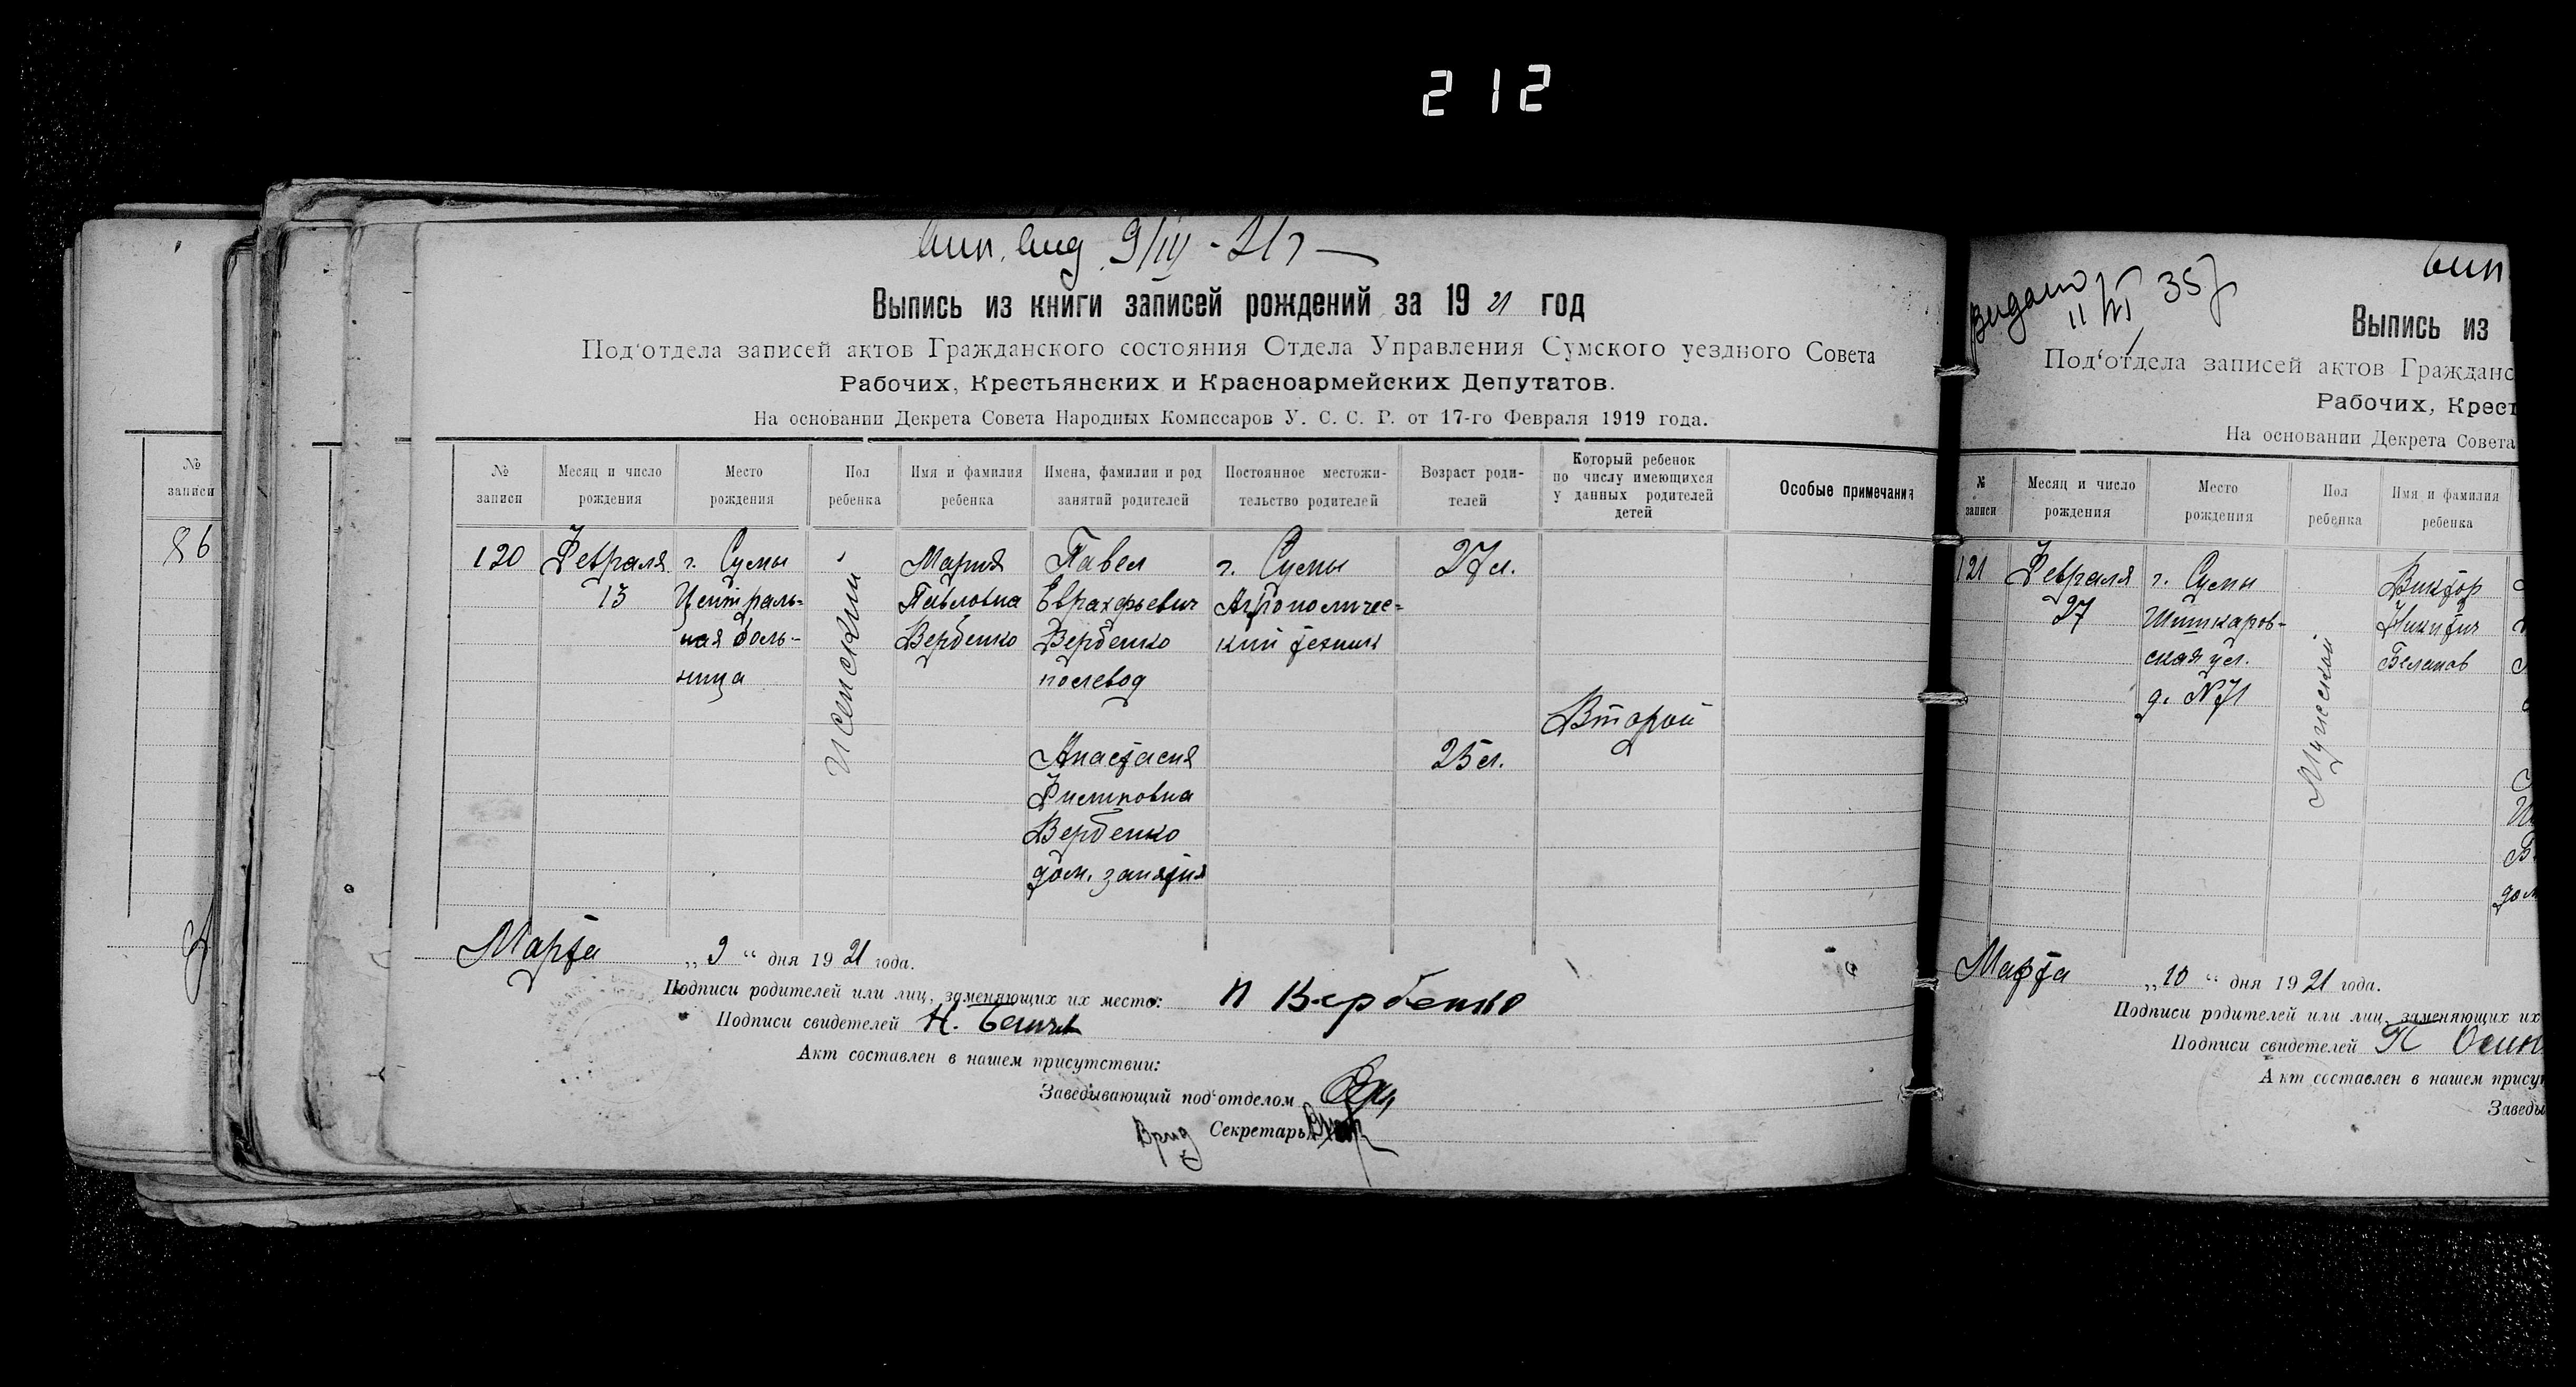 212
вип. вид. 9/III - 21 г
Выпись из книги записей рождений за 1921 год
Под'отдела записей актов Гражданского состояния Отдела Управления Сумского уездного Совета
Рабочих, Крестьянских и Красноармейских Депутатов.
На основании Декрета Совета Народных Комиссаров У. С. С. Р. от 17-го Февраля 1919 года.
№ записи
Месяц и число рождения
Место рождения
Пол ребенка
Имя и фамилия ребенка
Имена, фамилии и род занятий родителей
Постоянное местожительство родителей
Возраст родителей
Который ребенок по числу имеющихся у данных родителей детей
Особые примечания
120
Февраля
13
г. Сумы
Централь-
ная боль-
ница
Женский
Мария
Павловна
Вербенко
Павел
Вербенко
полевод
Анастасия
Филиповна
Вербенко
дом. занятия
г. Сумы
кий техник
27 л.
25 л.
Второй
Марта „ 9 “ дня 1921 года.
Подписи родителей или лиц, заменяющих их место: П Вербенко
Подписи свидетелей Н.
Акт составлен в нашем присутствии:
Заведывающий под'отделом
Врид Секретарь
№
записи
86
Видано
II 35 г
вип
Выпись из
Под'отдела записей актов Гражданс
Рабочих, Крест
На основании Декрета Совета
№ записи
Месяц и число рождения
Место рождения
Пол ребенка
Имя и фамилия ребенка
121
Февраля
27
г. Сумы
Шишкаров-
ская ул.
д. № 71
Мужской
Виктор
Никитич
дом
Марта „ 10 “ дня 1921 года.
Подписи родителей или лиц, заменяющих их
Подписи свидетелей П
Акт составлен в нашем присут
Заведы